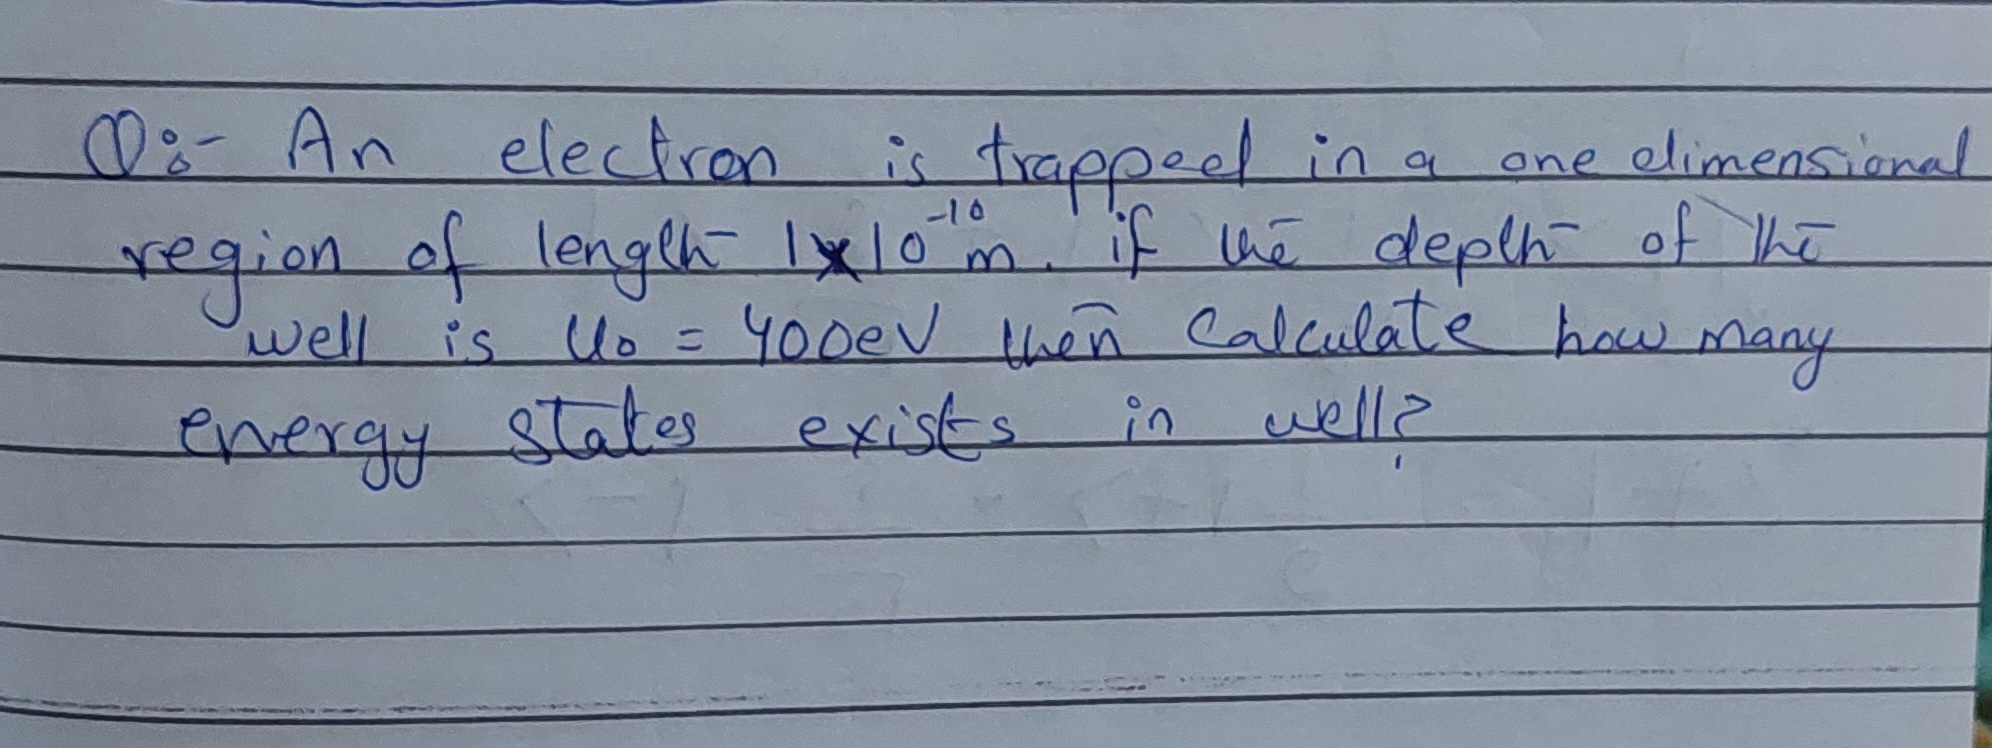 Q:- An electron is trapped in a one dimensional
region of length 1x10⁻¹⁰m. if the depth of the
well is U₀ = 400eV then calculate how many
energy states exists in well?